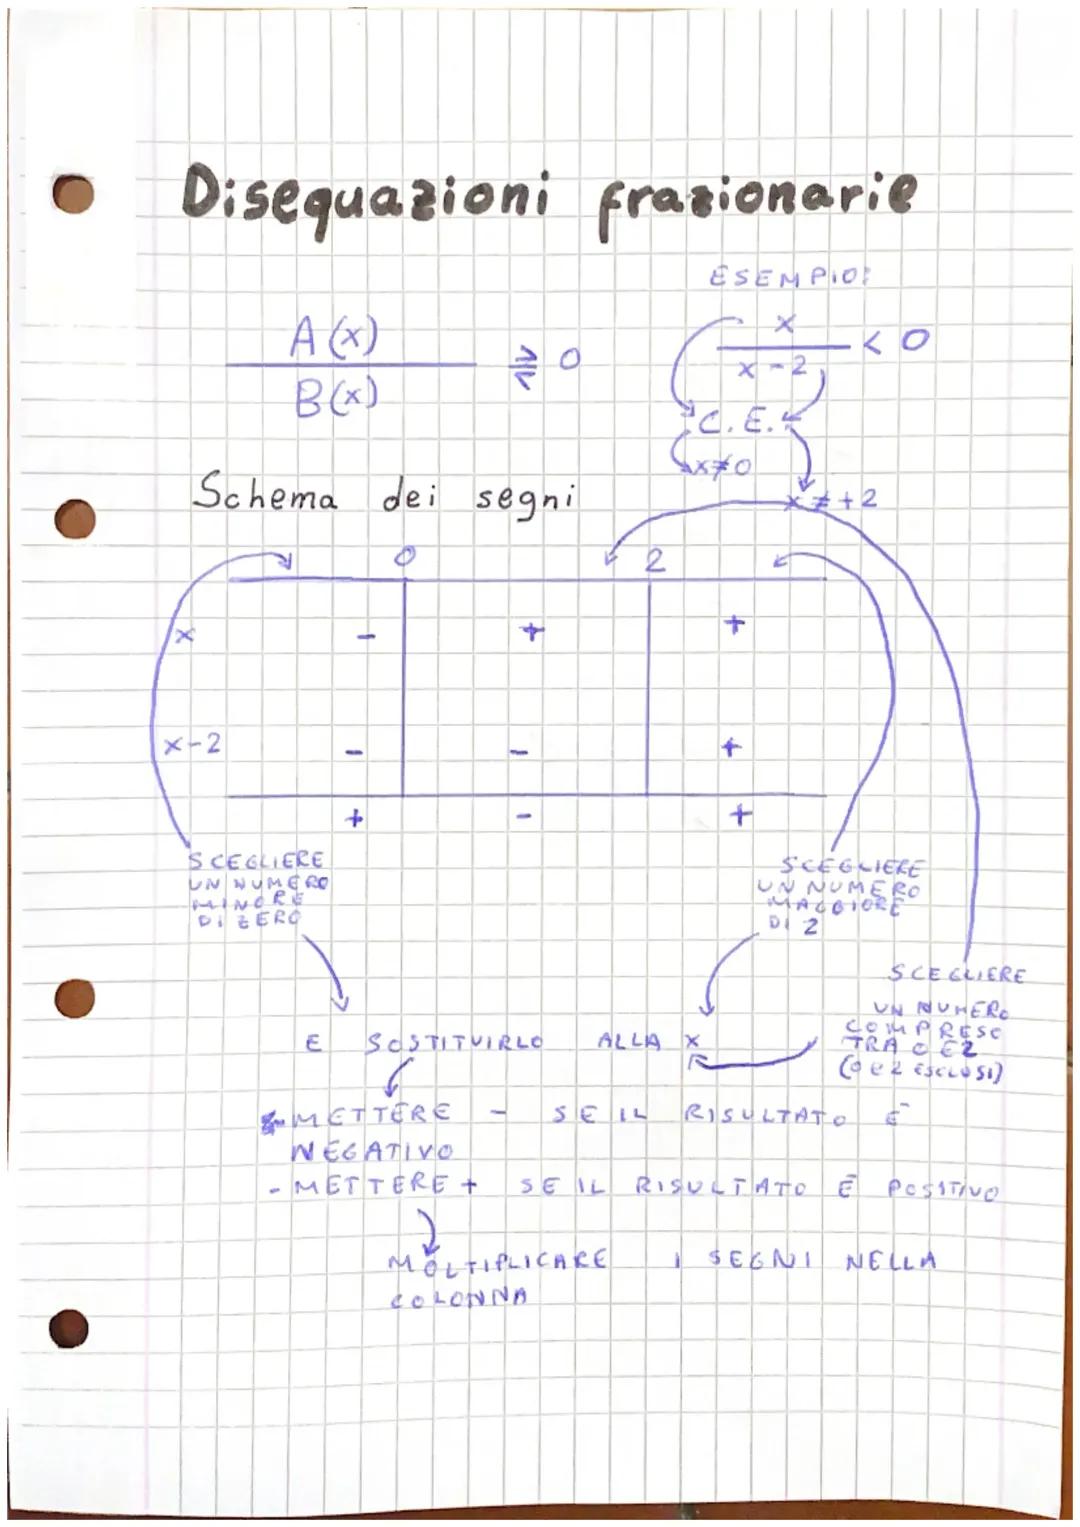 Disequazioni frazionarie
ESEMPIO:
A(x)
B(x)
⋛ 0
x
x-2
< 0
C.E.:
x≠0
x≠+2
Schema dei segni
0 2
x - + +
x-2 - - +
+ - +
SCEGLIERE
UN NUMERO
MINORE
DI ZERO
SCEGLIERE
UN NUMERO
MAGGIORE
DI 2
SCEGLIERE
UN NUMERO
COMPRESO
TRA 0 E 2
(0 e 2 ESCLUSI)
E SOSTITUIRLO ALLA X
- METTERE - SE IL RISULTATO È
NEGATIVO
- METTERE + SE IL RISULTATO È POSITIVO
MOLTIPLICARE I SEGNI NELLA
COLONNA